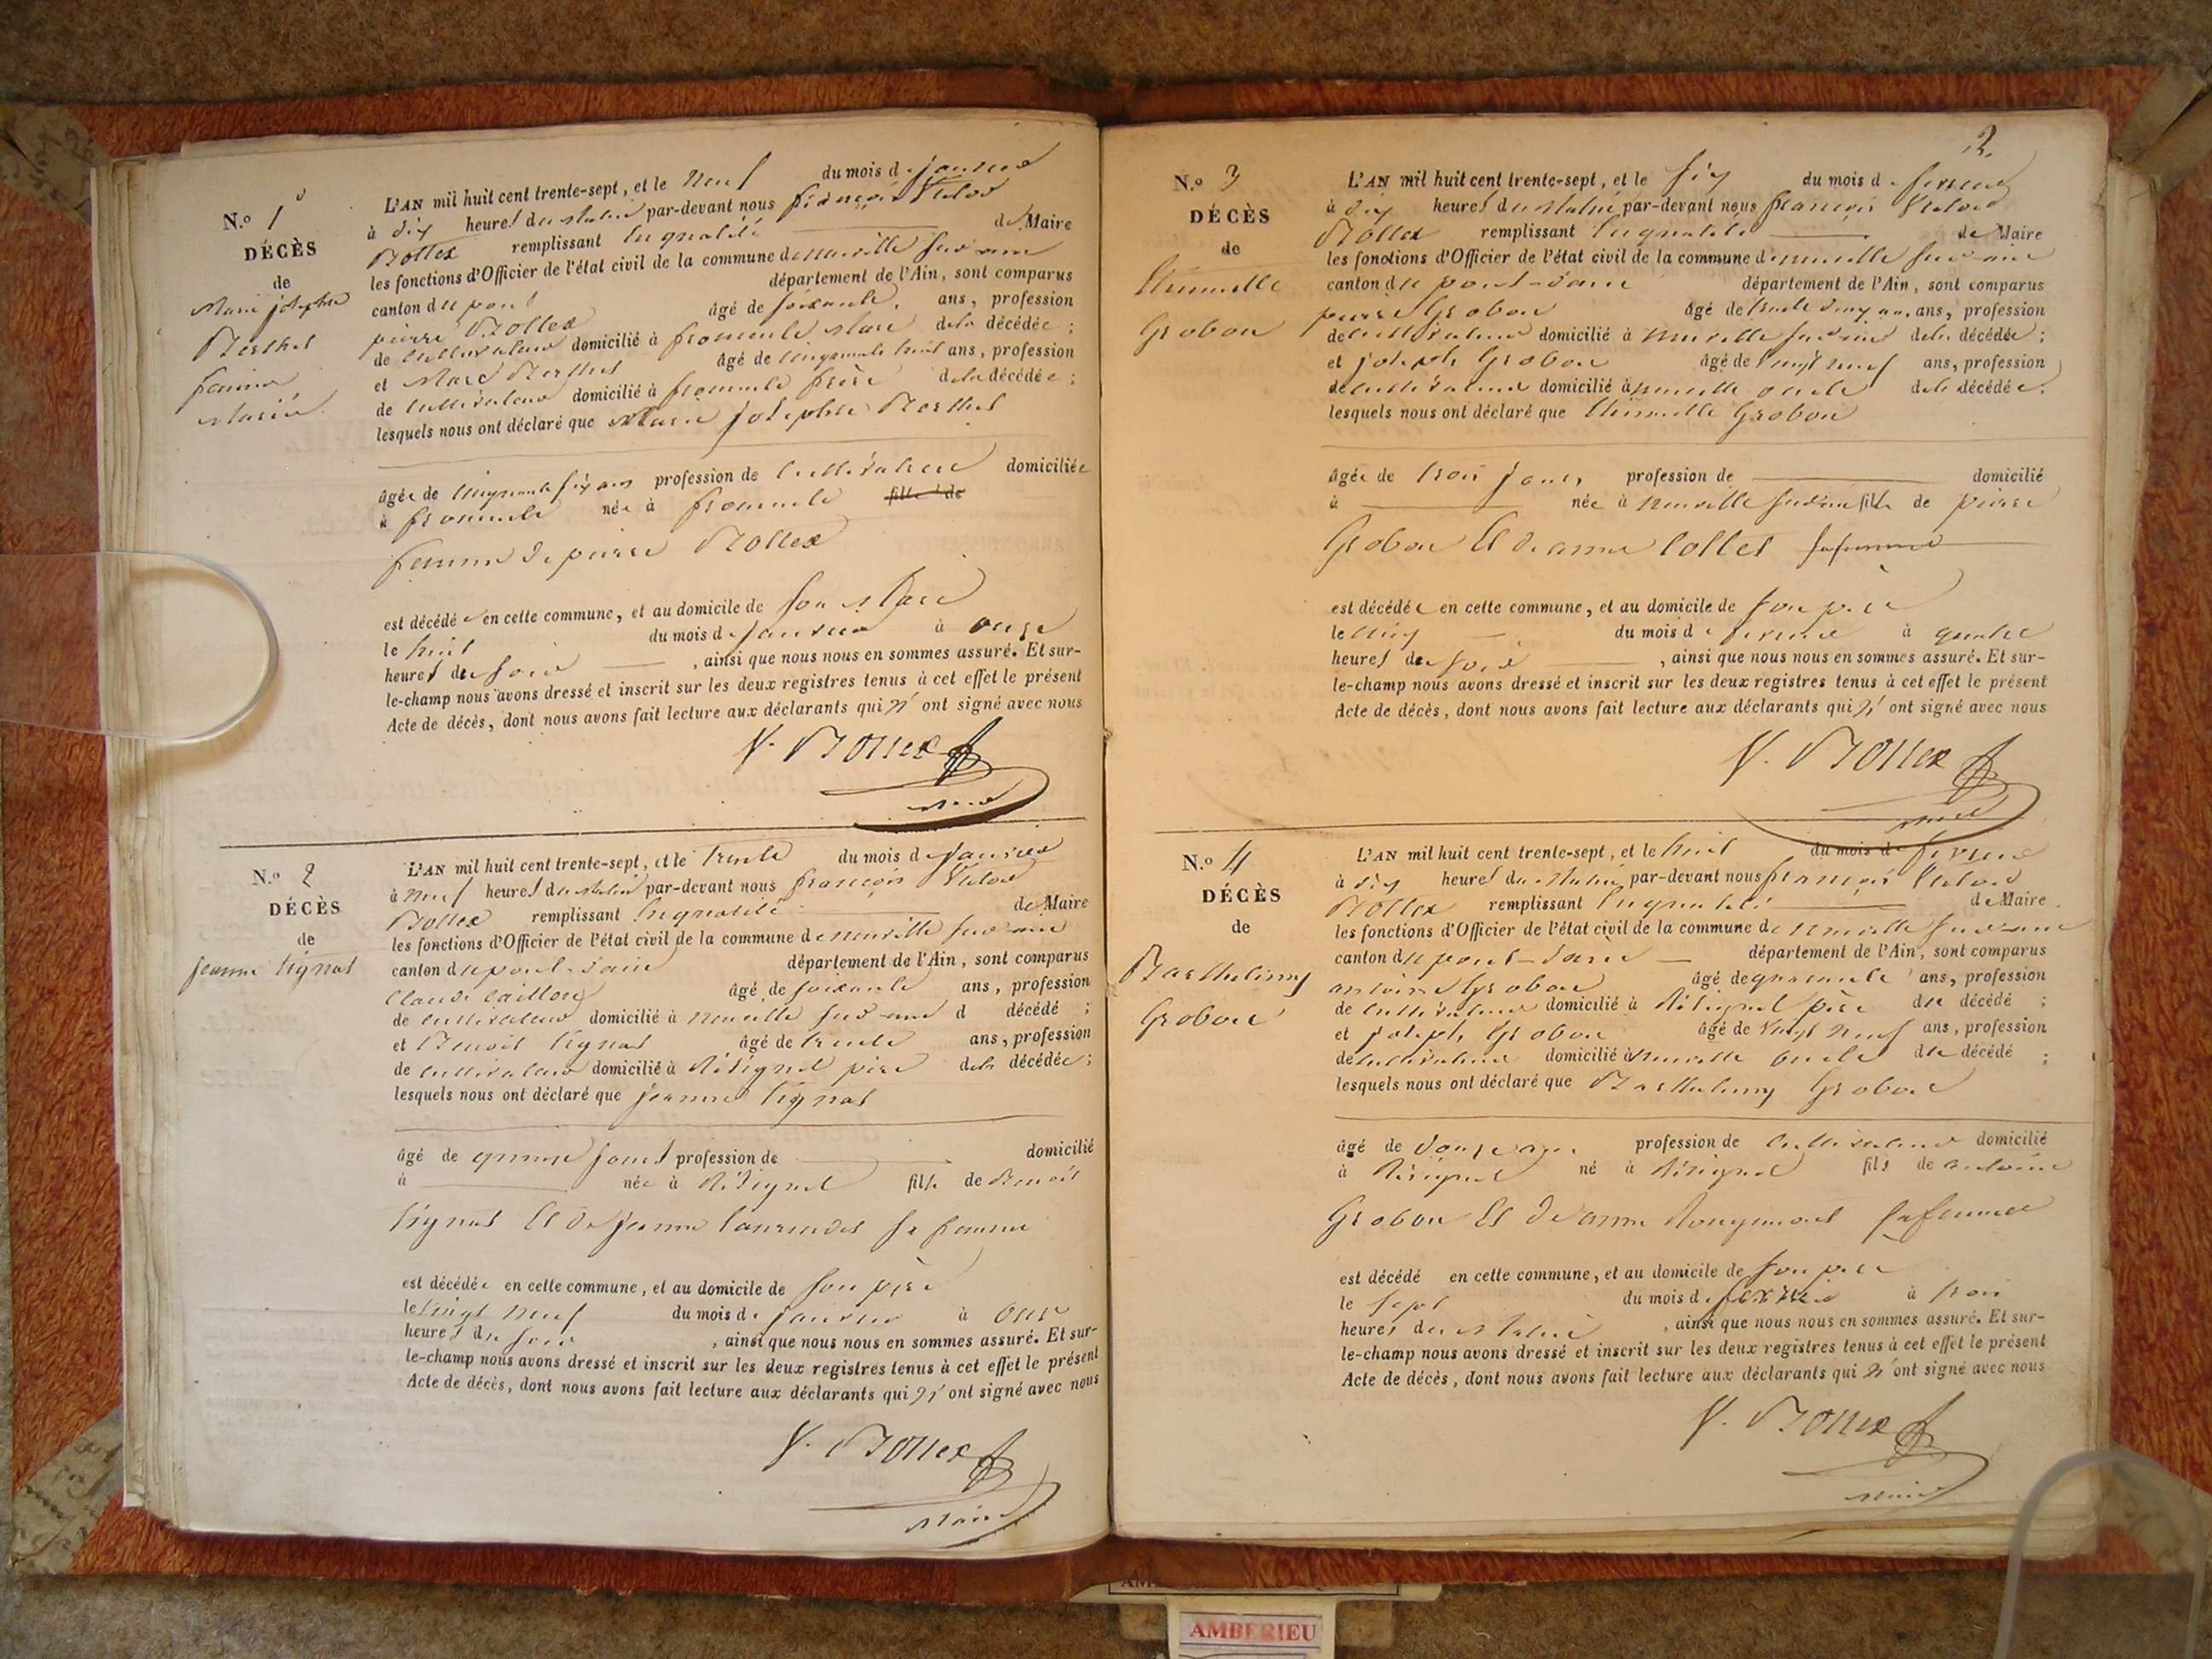 N.o 1
DÉCÈS
de
Marie josephe
Berthet
femme
Mariée
L'AN mil huit cent trente-sept, et le neuf du mois de janvier
à dix heures du Matin par-devant nous françois Victor
Bollex remplissant en qualité de Maire
les fonctions d'Officier de l'état civil de la commune de neuville sur ain
canton du pont département de l'Ain, sont comparus
pierre Bollex âgé de soixante ans, profession
de cultivateur domicilié à fromente Mari de la décédée ;
et Marc Berthet âgé de cinquante huit ans, profession
de cultivateur domicilié à fromente frère de la décédée ;
lesquels nous ont déclaré que Marie josephe Berthet
âgée de cinquante six ans profession de cultivatrice domiciliée
à fromente née à fromente fille de
femme de pierre Bollex
est décédée en cette commune, et au domicile de son Mari
le huit du mois de janvier à onze
heures du soir , ainsi que nous nous en sommes assuré. Et sur-
le-champ nous avons dressé et inscrit sur les deux registres tenus à cet effet le présent
Acte de décès, dont nous avons fait lecture aux déclarants qui n' ont signé avec nous
V. Bollex
Maire
N.o 2
DÉCÈS
de
jeanne tignat
L'AN mil huit cent trente-sept, et le trente du mois de janvier
à neuf heures du Matin par-devant nous françois Victor
Bollex remplissant en qualité de Maire
les fonctions d'Officier de l'état civil de la commune de neuville sur ain
canton du pont-d'ain département de l'Ain, sont comparus
Claude âgé de soixante ans, profession
de cultivateur domicilié à neuville sur ain d décédé ;
et Benoit tignat âgé de trente ans, profession
de cultivateur domicilié à Résignel père de la décédée ;
lesquels nous ont déclaré que jeanne tignat
âgé de quinze jours profession de domicilié
à née à Résignel fille de Benoit
tignat Et de jeanne sa femme
est décédée en cette commune, et au domicile de son père
le vingt neuf du mois de janvier à onze
heures du soir , ainsi que nous nous en sommes assuré. Et sur-
le-champ nous avons dressé et inscrit sur les deux registres tenus à cet effet le présent
Acte de décès, dont nous avons fait lecture aux déclarants qui n' ont signé avec nous
V. Bollex
Maire
2.
N.o 3
DÉCÈS
de
Grobon
L'AN mil huit cent trente-sept, et le six du mois de fevrier
à dix heures du Matin par-devant nous françois Victor
Bollex remplissant en qualité de Maire
les fonctions d'Officier de l'état civil de la commune de neuville sur ain
canton du pont-d'ain département de l'Ain, sont comparus
pierre Grobon âgé de trente ans, profession
de cultivateur domicilié à neuville sur ain de la décédée ;
et joseph Grobon âgé de vingt neuf ans, profession
de cultivateur domicilié à neuville oncle de la décédée.
lesquels nous ont déclaré que Grobon
âgée de trois jours profession de domicilié
à née à neuville sur ain fille de pierre
Grobon Et de anne Collet sa femme
est décédée en cette commune, et au domicile de son père
le cinq du mois de fevrier à quatre
heures du soir , ainsi que nous nous en sommes assuré. Et sur-
le-champ nous avons dressé et inscrit sur les deux registres tenus à cet effet le présent
Acte de décès, dont nous avons fait lecture aux déclarants qui n' ont signé avec nous
V. Bollex
Maire
N.o 4
DÉCÈS
de
Barthelemy
Grobon
L'AN mil huit cent trente-sept, et le huit du mois de fevrier
à dix heures du Matin par-devant nous françois Victor
Bollex remplissant en qualité de Maire
les fonctions d'Officier de l'état civil de la commune de neuville sur ain
canton du pont-d'ain département de l'Ain, sont comparus
antoine Grobon âgé de quarante ans, profession
de cultivateur domicilié à Résignel père du décédé ;
et joseph Grobon âgé de vingt neuf ans, profession
de cultivateur domicilié à neuville oncle du décédé ;
lesquels nous ont déclaré que Barthelemy Grobon
âgé de douze ans profession de cultivateur domicilié
à Résignel né à Résignel fils de antoine
Grobon Et de anne Rougemont sa femme
est décédé en cette commune, et au domicile de son père
le sept du mois de fevrier à trois
heures du Matin , ainsi que nous nous en sommes assuré. Et sur-
le-champ nous avons dressé et inscrit sur les deux registres tenus à cet effet le présent
Acte de décès, dont nous avons fait lecture aux déclarants qui n' ont signé avec nous
V. Bollex
Maire
AMBERIEU